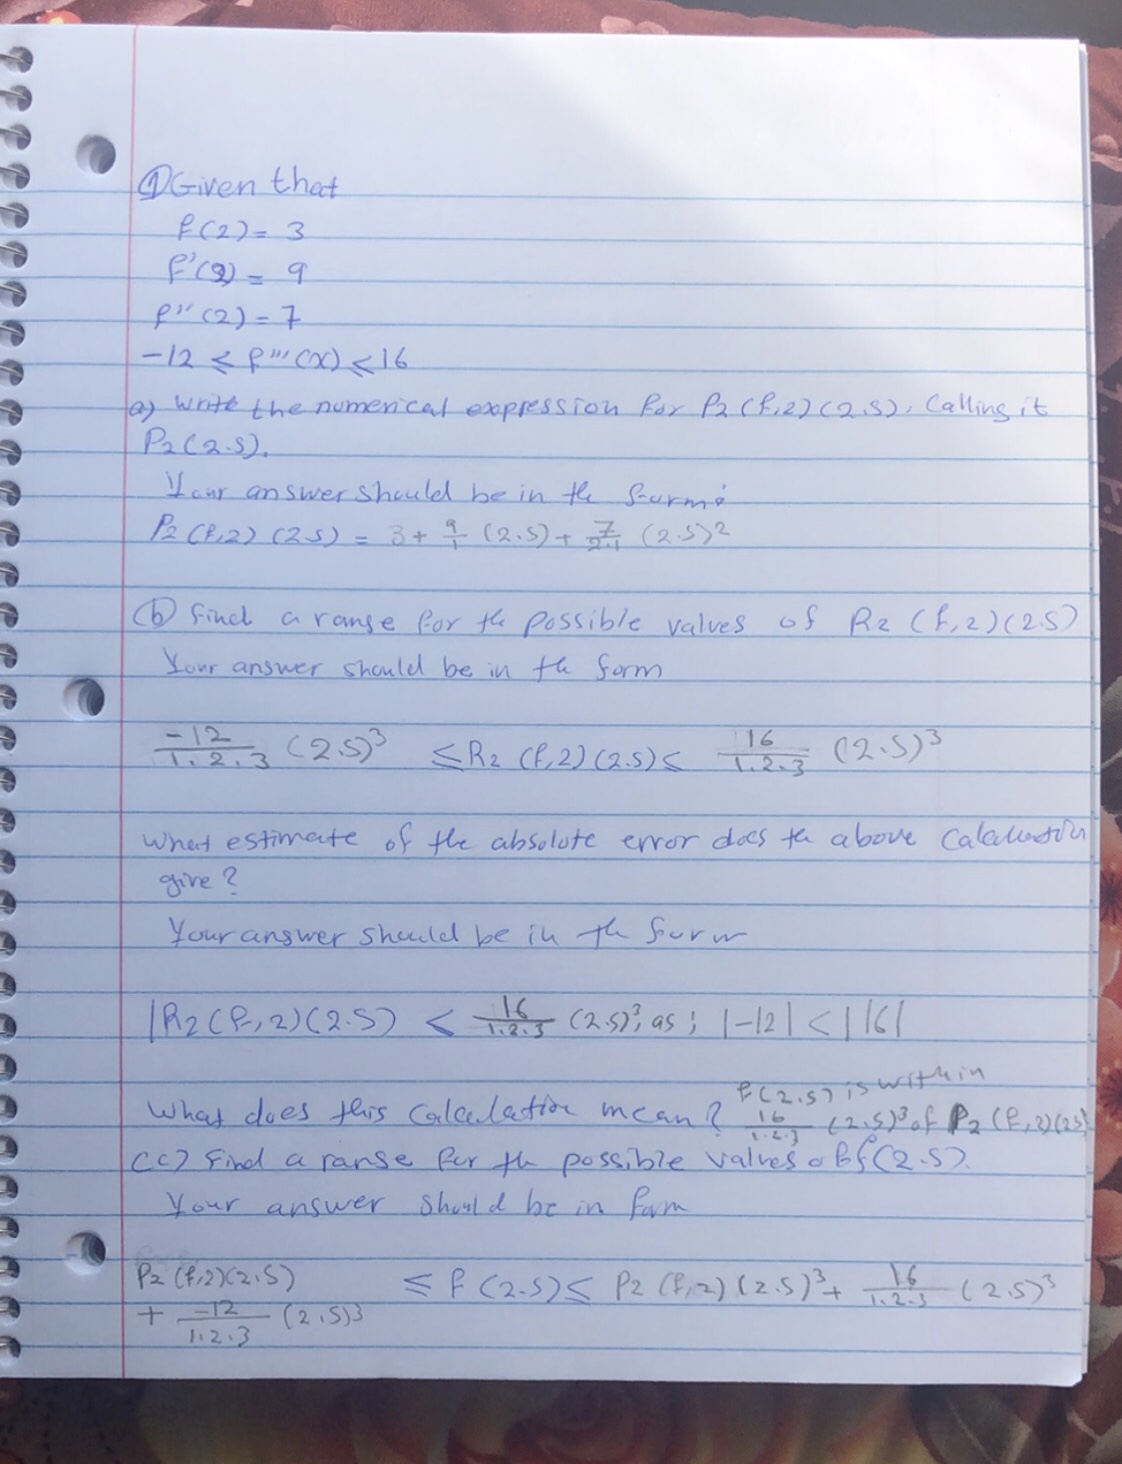 ① Given that
f(2) = 3
f'(2) = 9
f''(2) = 7
-12 ≤ f'''(x) ≤ 16
a) Write the numerical expression for P2(f,2)(2.5), Calling it
P2(2.5).
Your answer should be in the form:
P2(f,2)(2.5) = 3 + 9/1 (2.5) + 7/2.1 (2.5)²
(b) Find a range for th possible values of R2(f,2)(2.5)
Your answer should be in th form
-12/1.2.3 (2.5)³ ≤ R2(f,2)(2.5) ≤ 16/1.2.3 (2.5)³
What estimate of the absolute error does th above Calculation
give?
Your answer should be in th form
|R2(f,2)(2.5) < 16/1.2.3 (2.5)³; as; |-12| < |16|
What does this Calculation mean? f(2.5) is within
16/1.2.3 (2.5)³ of P2(f,2)(2.5)
(c) Find a range for th possible values of f(2.5).
Your answer should be in form
P2(f,2)(2.5) + -12/1.2.3 (2.5)³ ≤ f(2.5) ≤ P2(f,2)(2.5)³ + 16/1.2.3 (2.5)³